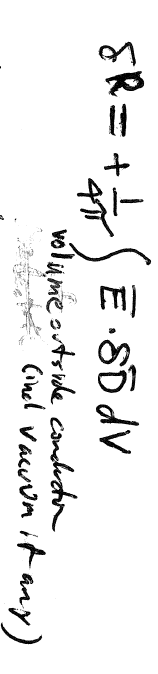 δR = + 1/4π ∫ E̅ · δD̅ dV
volume outside conductor
(incl vacuum if any)